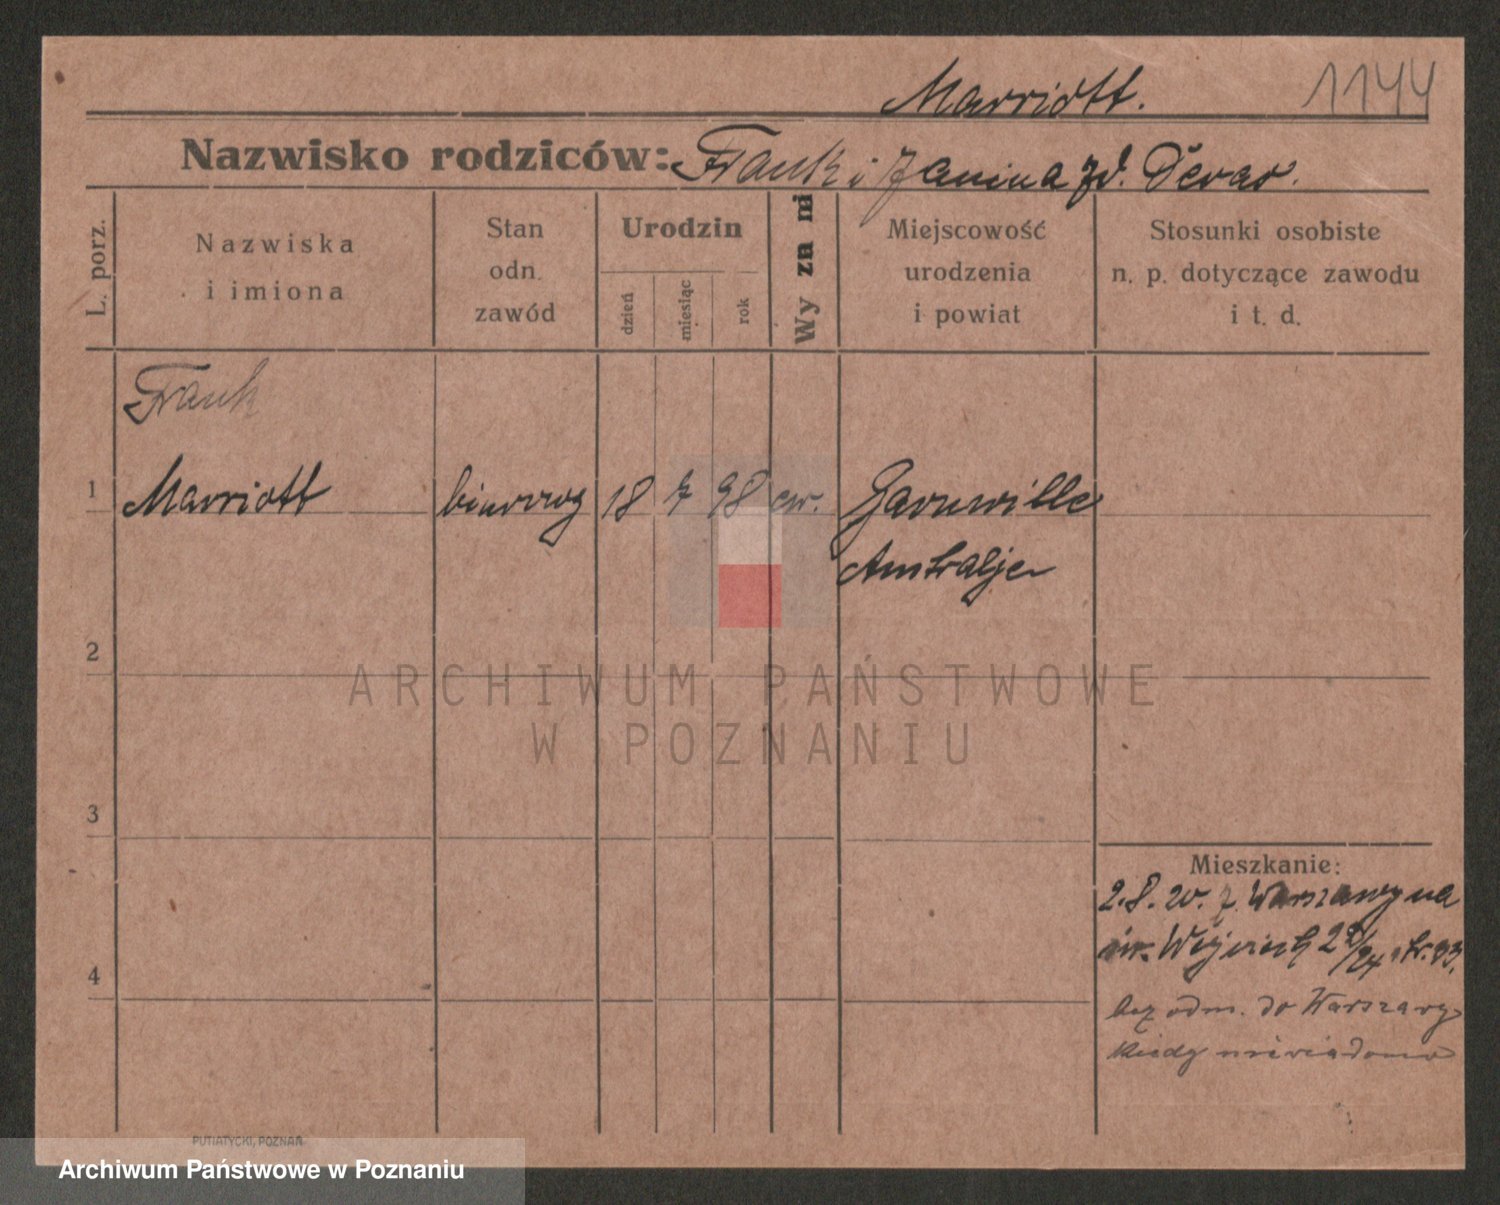 Marriott. 1144
Nazwisko rodziców: Frank i Janina zd. Devar.
L. porz.
Nazwiska
i imiona
Stan
odn.
zawód
Urodzin
dzień
miesiąc
rok
Wy zna ni
Miejscowość
urodzenia
i powiat
Stosunki osobiste
n. p. dotyczące zawodu
i t. d.
Frank
1 Marriott biurowy 18 7 98 ew. Garnwille
Australje
2
ARCHIWUM PAŃSTWOWE
W POZNANIU
3
Mieszkanie:
2.8.20. z Warszawy na
św. Wojciech 22/24 tr. 33.
4
bez odm. do Warszawy
kiedy niewiadomo
PUTIATYCKI, POZNAŃ
Archiwum Państwowe w Poznaniu